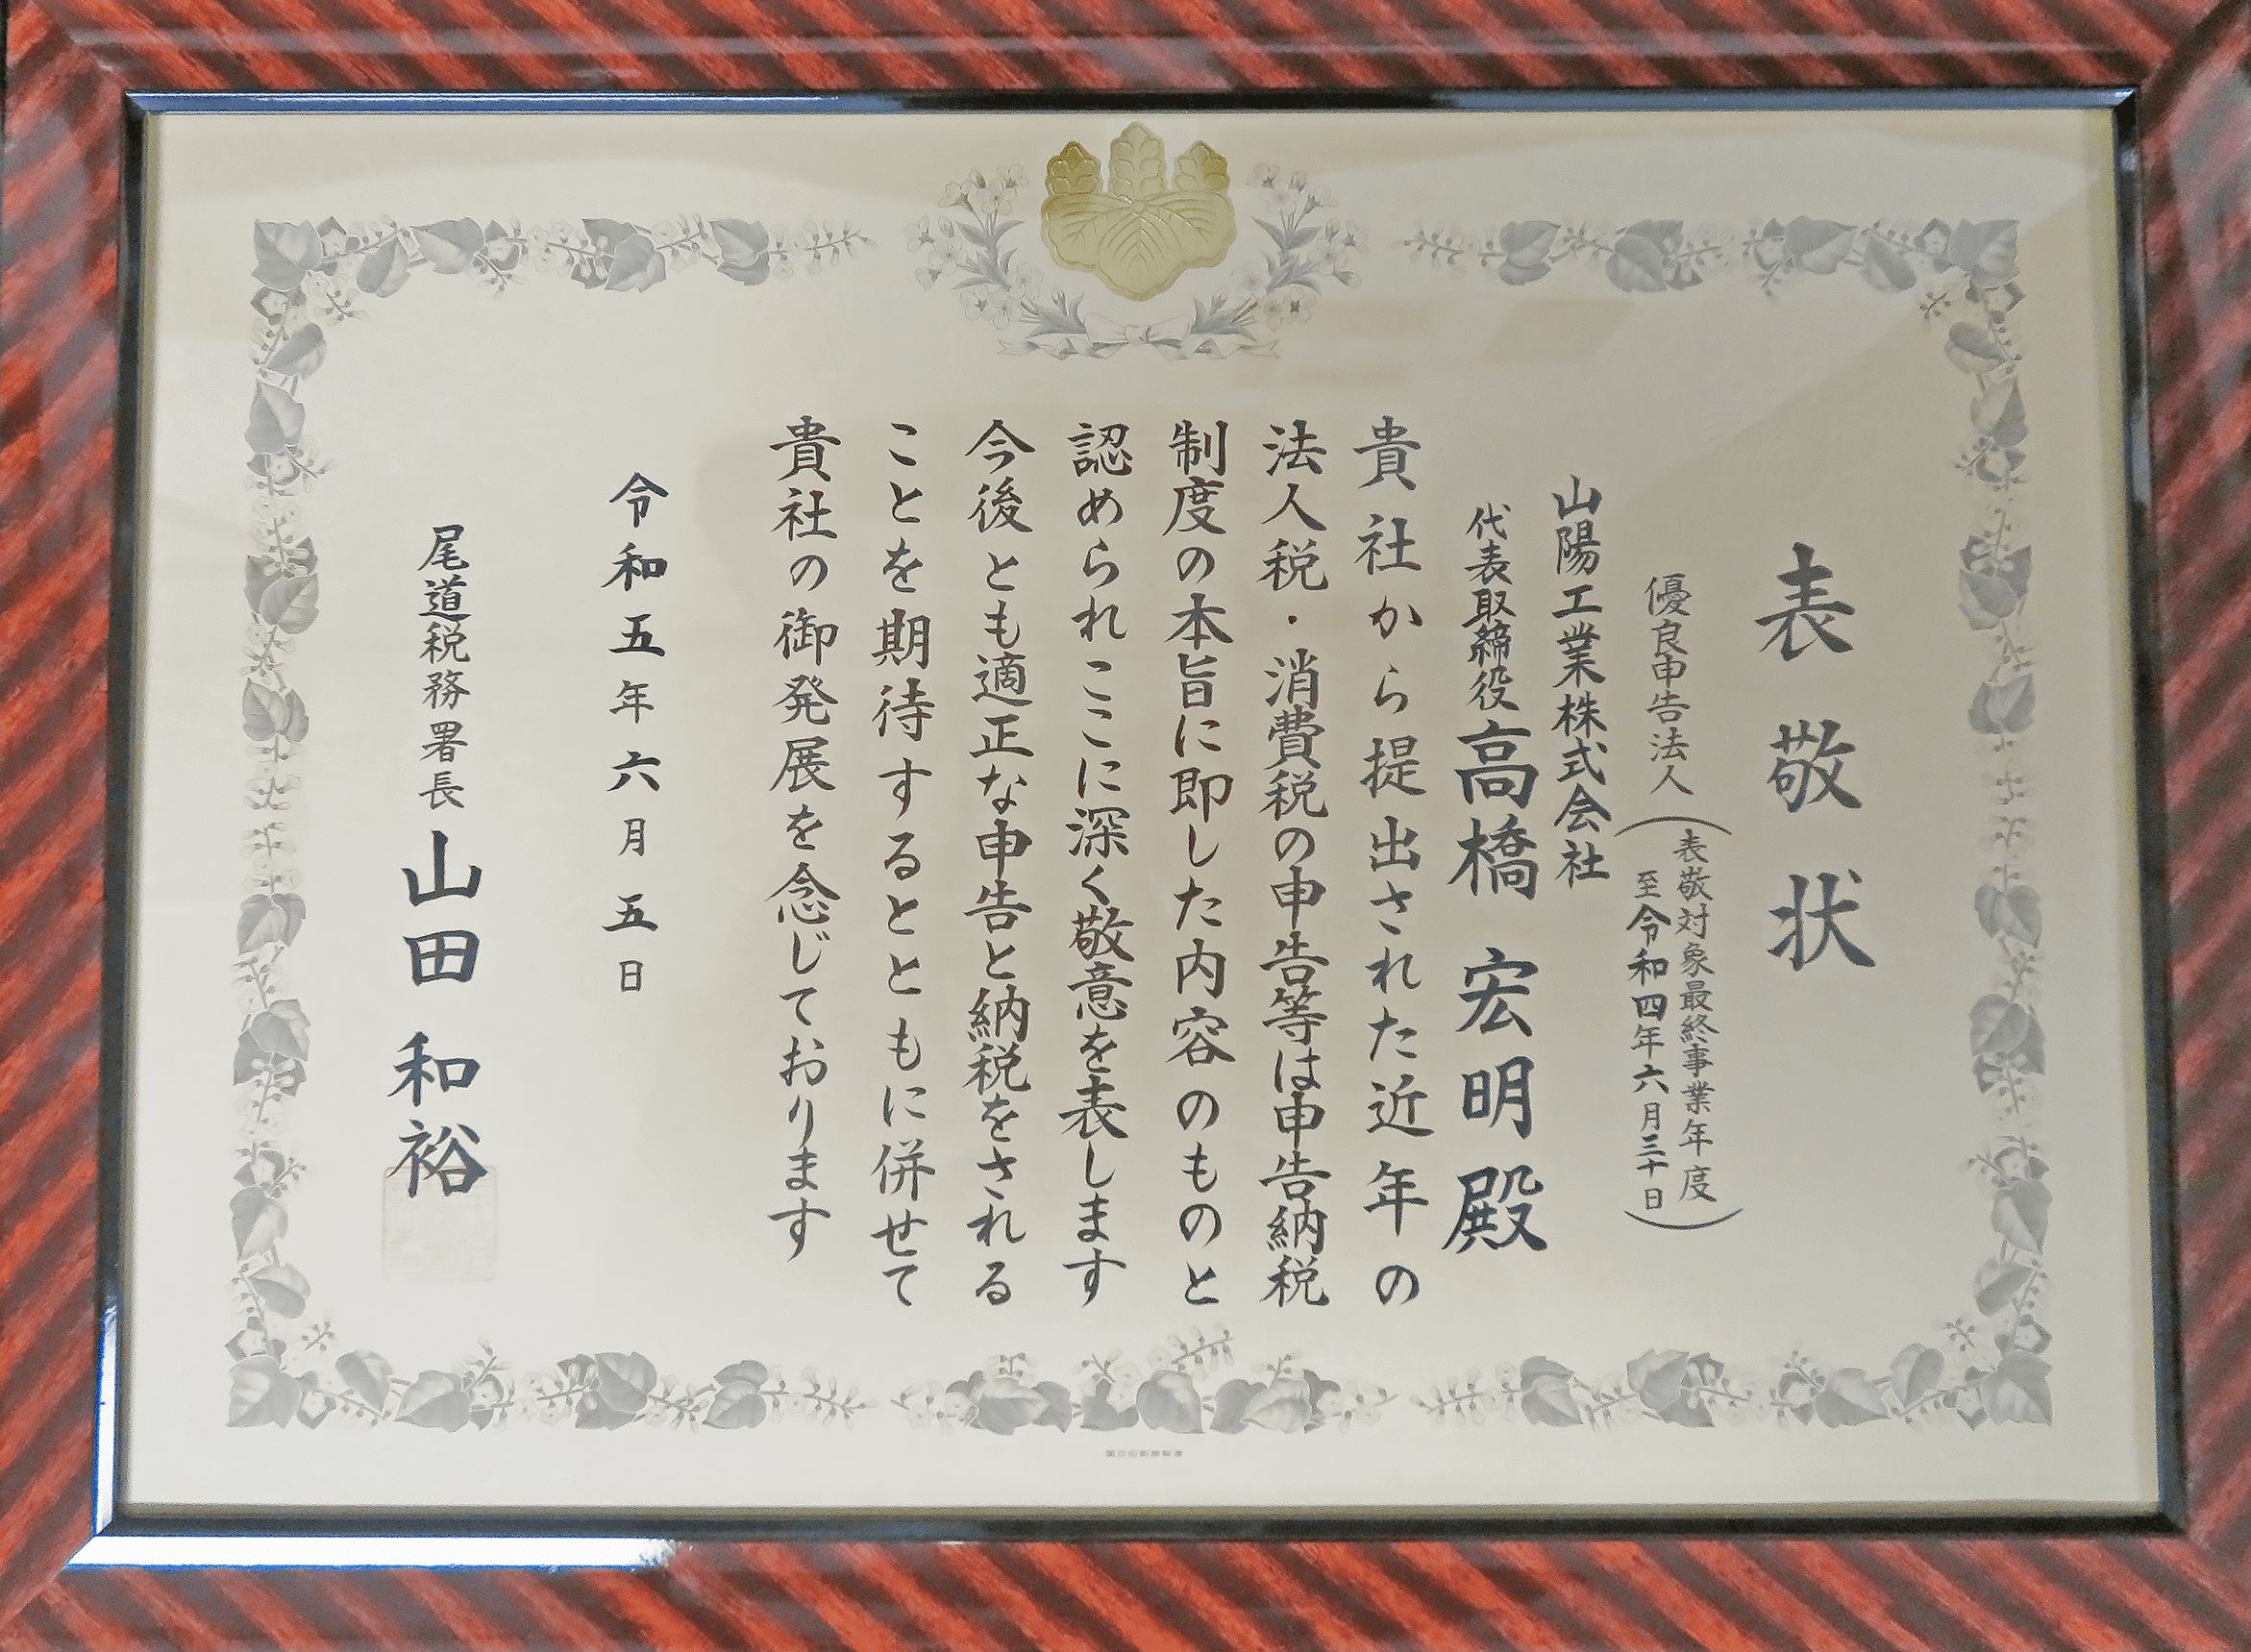 表敬状
優良申告法人
（表敬対象最終事業年度
至令和四年六月三十日）
山陽工業株式会社
代表取締役 高橋 宏明 殿
貴社から提出された近年の
法人税・消費税の申告等は申告納税
制度の本旨に即した内容のものと
認められここに深く敬意を表します
今後とも適正な申告と納税をされる
ことを期待するとともに併せて
貴社の御発展を念じております
令和五年六月五日
尾道税務署長 山田 和裕